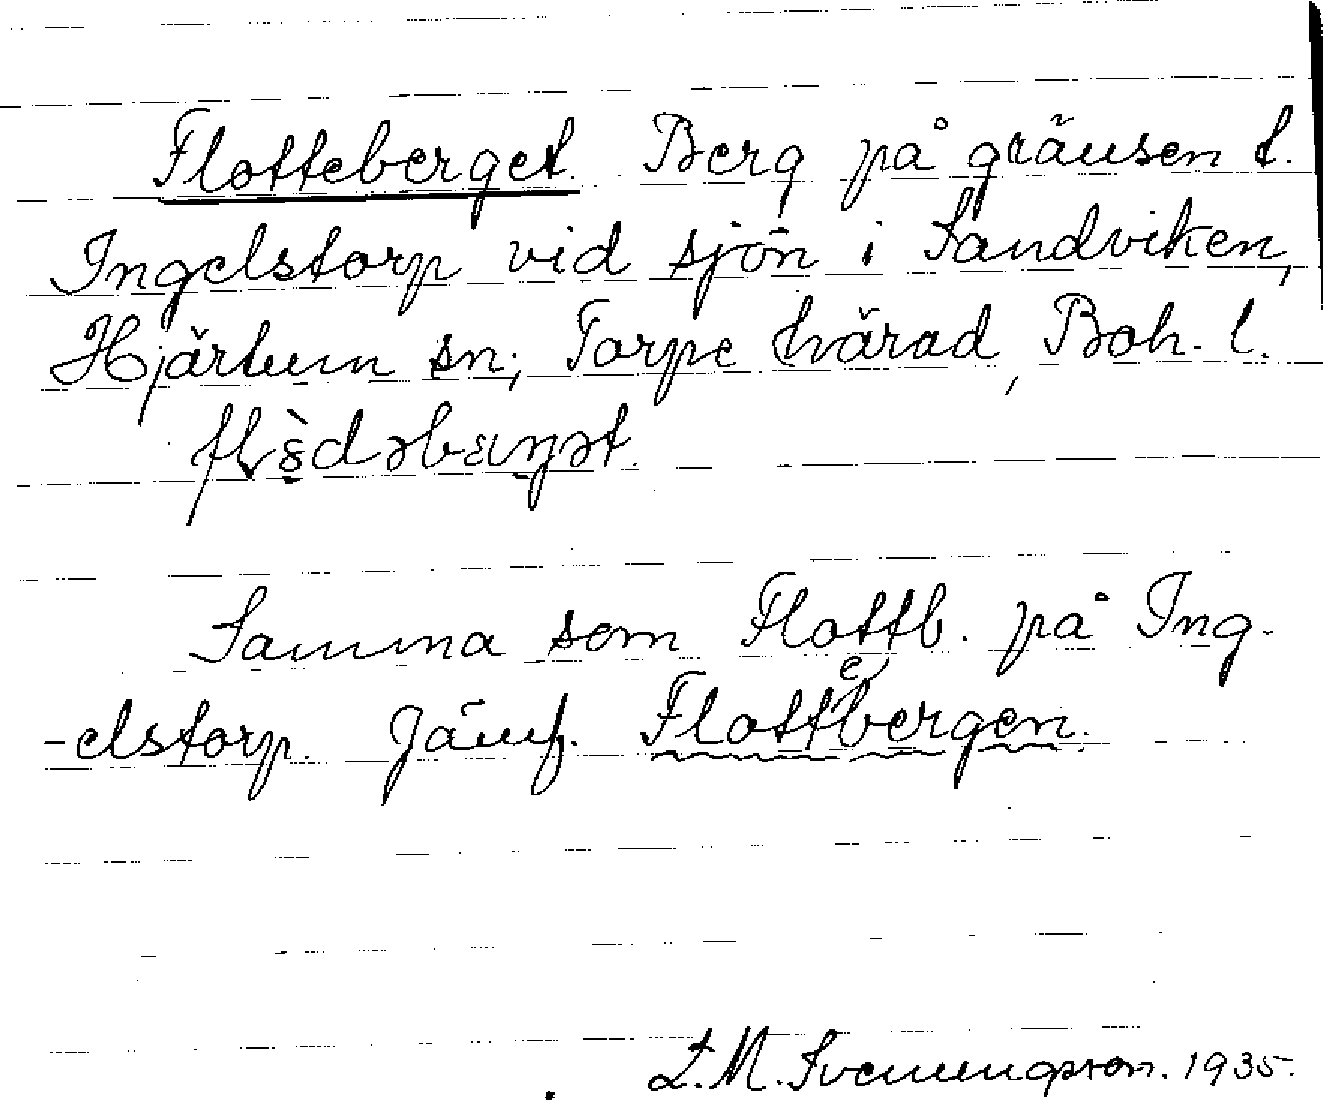 Flotteberget. Berg på gränsen t.
Ingelstorp vid sjön i Sandviken,
Hjärtum sn; Torpe härad, Boh. l.
Samma som Flottb. på Ing-
-elstorp. Jämf. Flottebergen.
L. M. Svenungsson. 1935.